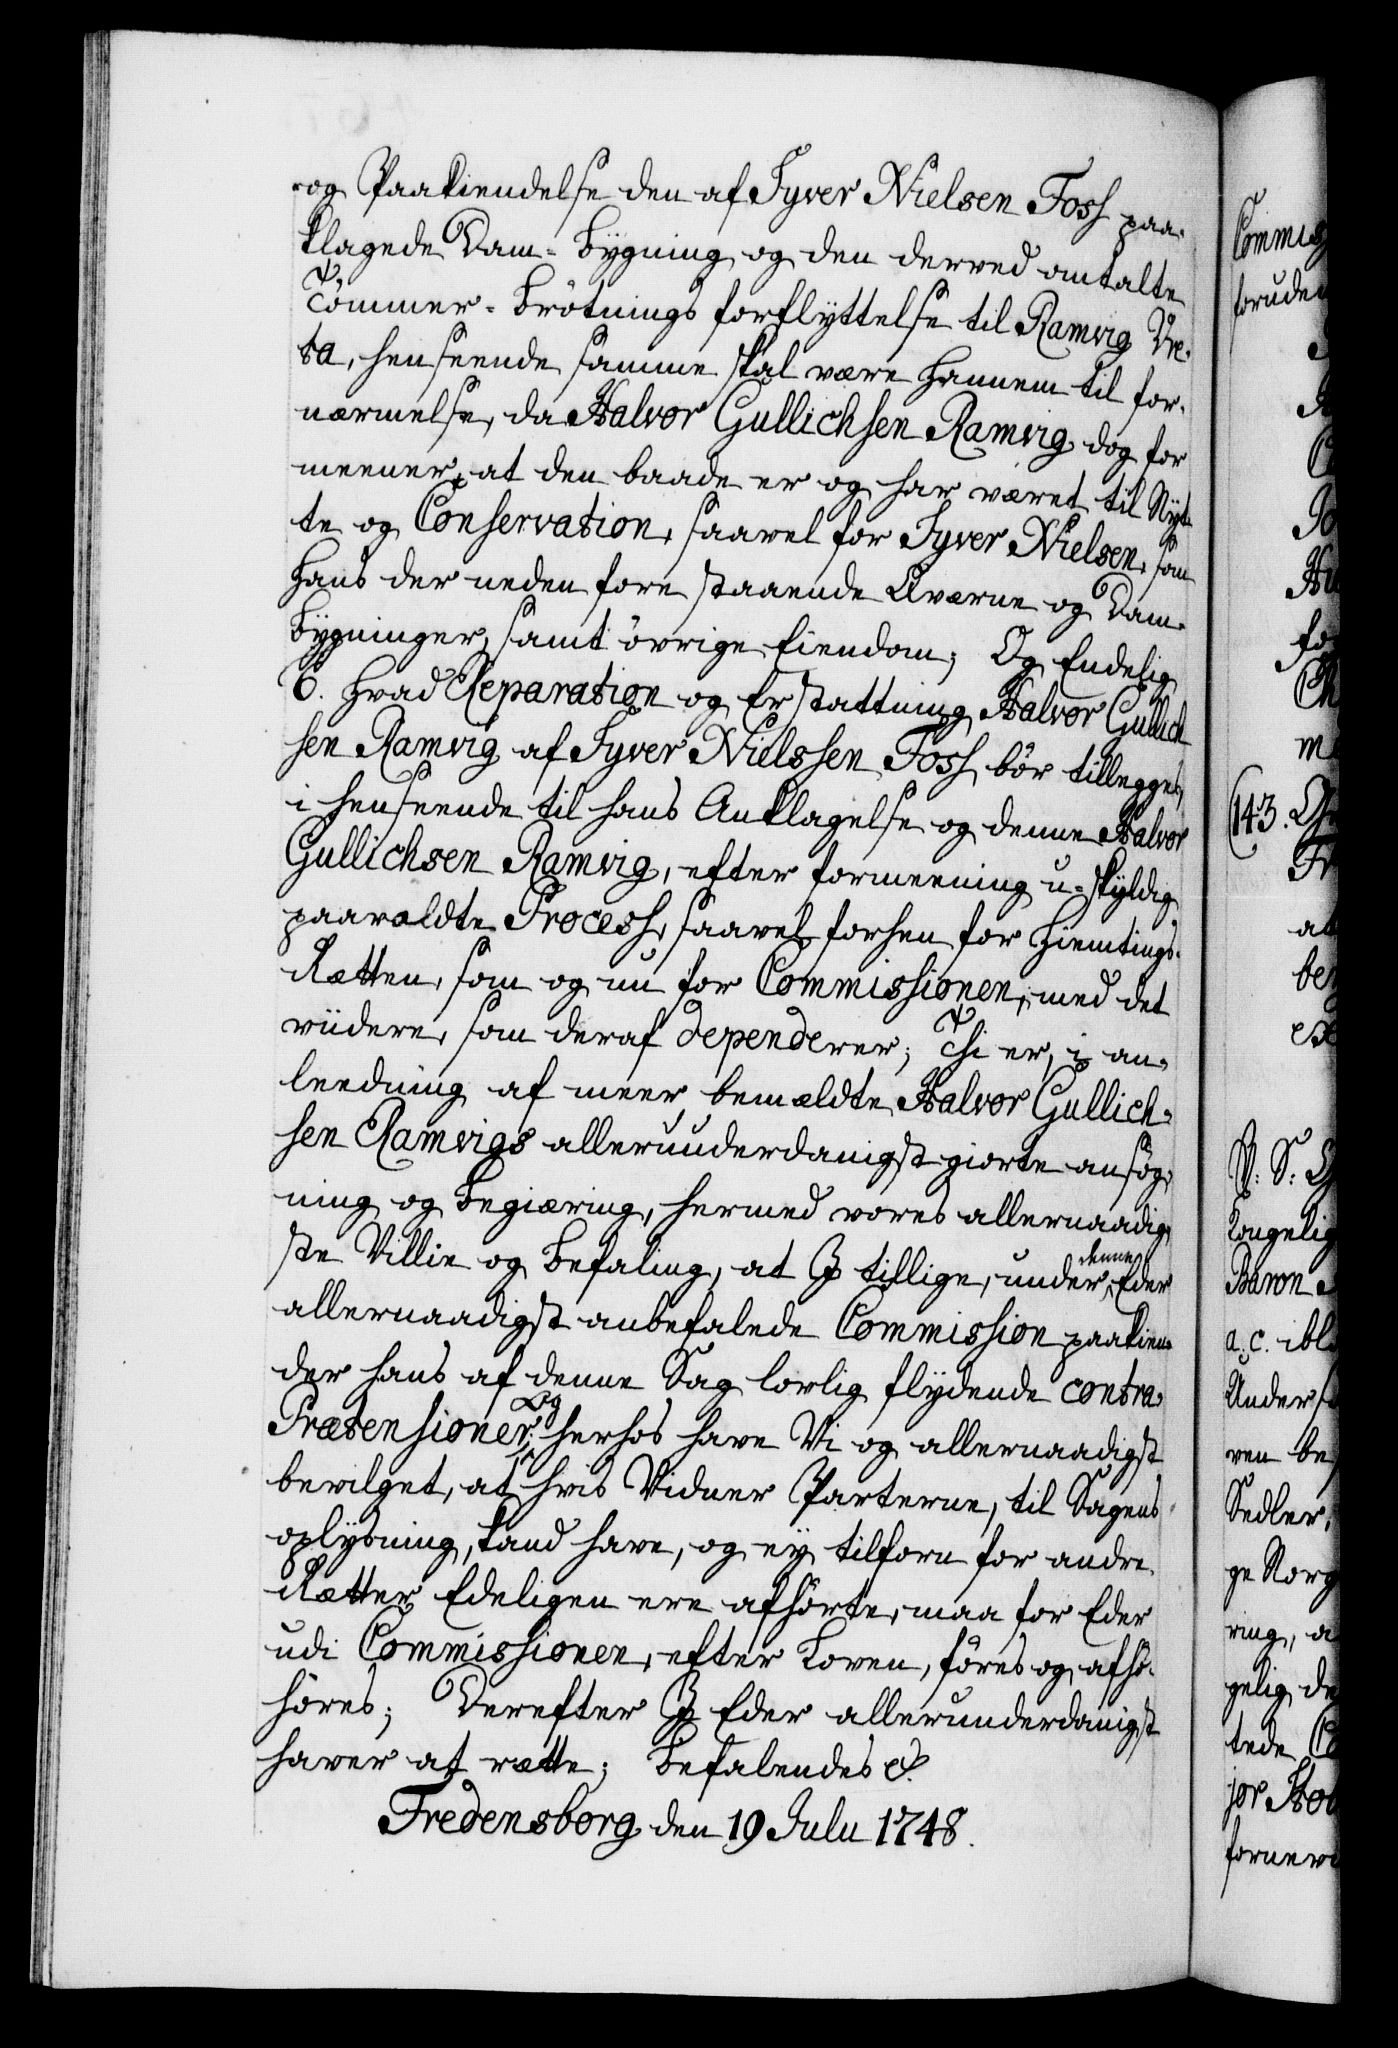 og Paakiendelse den af Syver Nielsen Foss paa-
klagede Dam-bygning og den derved antalte
Tömmer-brötnings forflyttelse til Ramvig Ve-
ta, henseende samme skal være hannem til for-
nærmelse, da Halvor Gullichsen Ramvig dog for
meener, at den baade er og har været til Nyt-
te og Conservation, saavel for Syver Nielsen, som
hans der neden fore staaende Qværne og Dam-
bygninger, samt övrige Eiendom; Og Endelig
6. hvad Reparation og Erstattning Halvor Gullich
sen Ramvig af Syver Nielssen Foss bör tillegges,
i henseende til hans Anklagelse og denne Halvor
Gullichsen Ramvig, efter formeening u-skyldig
paavoldte Process, saavel forhen for Hiemtings-
Rætten, som og nu for Commissionen, med det
viidere, som deraf dependerer; Thi er, i an-
leedning af meer bemældte Halvor Gullich-
sen Ramvigs allerunderdanigst giorte ansög-
ning og begiæring, hermed vores allernaadig-
ste Villie og befaling, at I tillige, under denne Eder
allernaadigst anbefalede Commission paakien-
der hans af denne Sag lovlig flydende contra-
Prætensioner; Og herhos have Vi og allernaadigst
bevilget, at hvis Vidner Parterne, til Sagens
oplysning, kand have, og ey tilforn for andre
Rætter Edeligen ere afhörte, maa for Eder
udi Commissionen, efter Loven, föres og afhö-
höres; Derefter I Eder allerunderdanigst
haver at rætte; Befalendes &.
Fredensborg den 19 Julii 1748.
Commis
foruden
143.
P: S:
Kongelig
Baron
a. c. ibl
Under
ven be
Sedler,
ge Norg
ring, a
gelig de
tede
jor